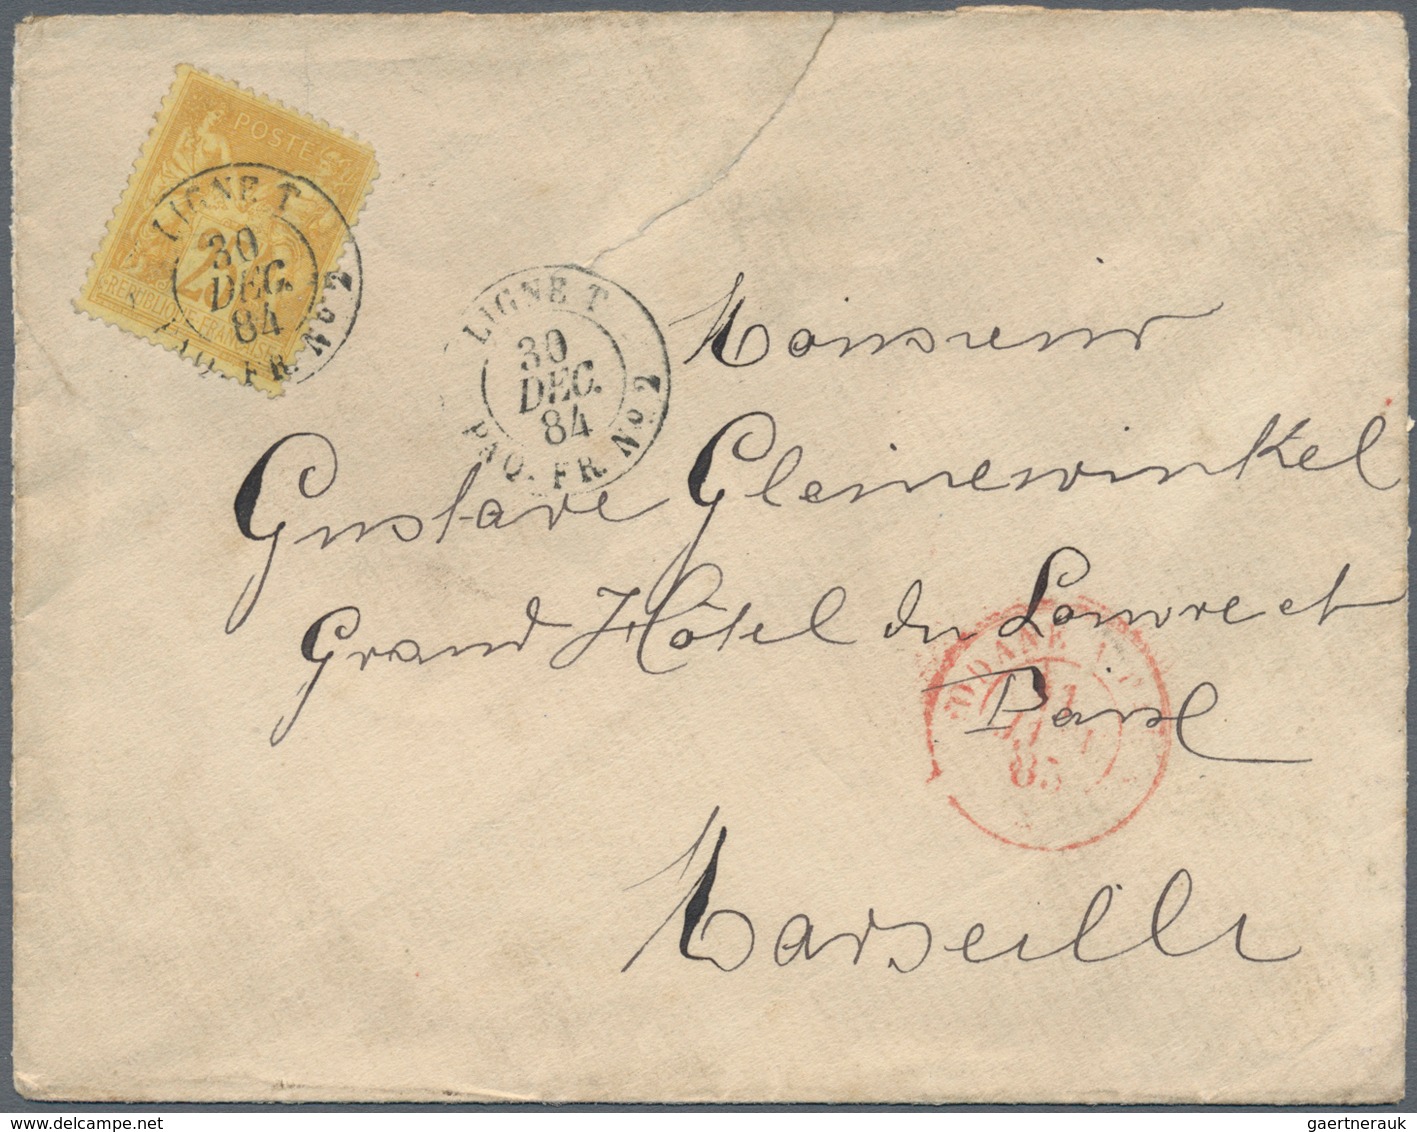 POSTE
25
REPUBLIQUE FRANCAISE
LIGNE T
30
DEC.
84
PAQ. FR. No 2
LIGNE T
30
DEC.
84
PAQ. FR. No 2
Monsieur
Gustave Gleinewinkel
Grand Hôtel du Louvre et
Paix
Marseille
MODANE
85
delcampe.net
gaertnerauk